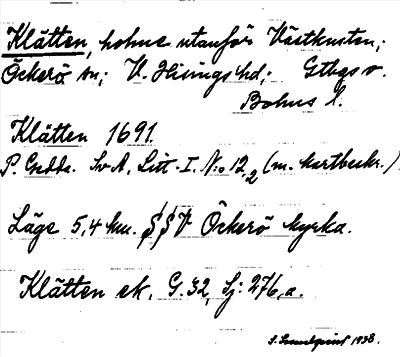 Klätten, holme utanför Västkusten;
Öckerö sn; V. Hisings hd; Gtbgs o.
Bohus l.
Klätten 1691
P. Gedda. Sv A, Litt. I. N:o 12,2 (m. kartbeskr.)
Läge 5,4 km. S§V Öckerö kyrka.
Klätten ek. G. 32, Sj: 276,a.
S. Lundqvist 1938.